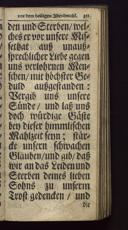 vor dem heiligen Abendmahl. 311
den und Sterben/ wel-
ches er vor unsere Mis-
sethat auß unauß-
sprechlicher Liebe gegen
uns verlohrnen Men-
schen/ mit höchster Ge-
duld außgestanden:
Vergib uns unsere
Sünde/ und laß uns
doch würdige Gäste
bey dieser himmlischen
Mahlzeit seyn; stär-
cke unsern schwachen
Glauben/ und gib/ daß
wir an das Leiden und
Sterben deines lieben
Sohns zu unserm
Trost gedencken/ und
die